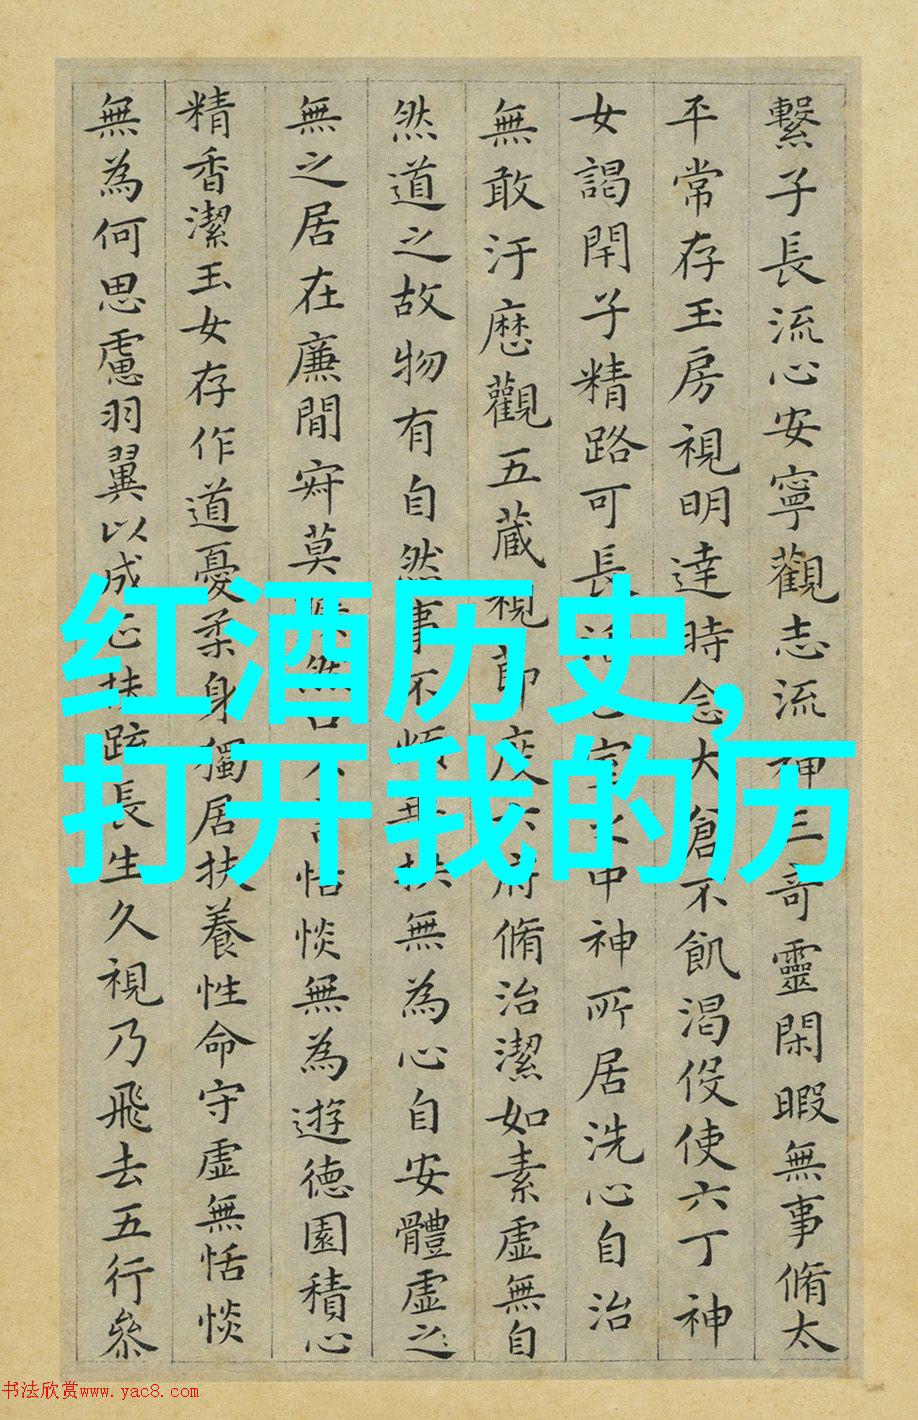 繫子長流心安寧觀志流神三奇靈閑暇無事脩太
平常存玉房視明達時念大倉不飢渴伇使六丁神
女謁閇子精路可長室之中神所居洗心自治
無敢汙歷觀五藏視節度六府脩治潔如素虛無自
然道之故物有自然事不煩垂拱無為心自安體虛之
無之居在廉間寂莫然口不言恬惔無為遊德園積心
精香潔玉女存作道憂柔身獨居扶養性命守虛無恬惔
無為何思慮羽翼以成正扶踈長生久視乃飛去五行參
红酒历史,
打开我的历
书法欣赏www.yac8.com